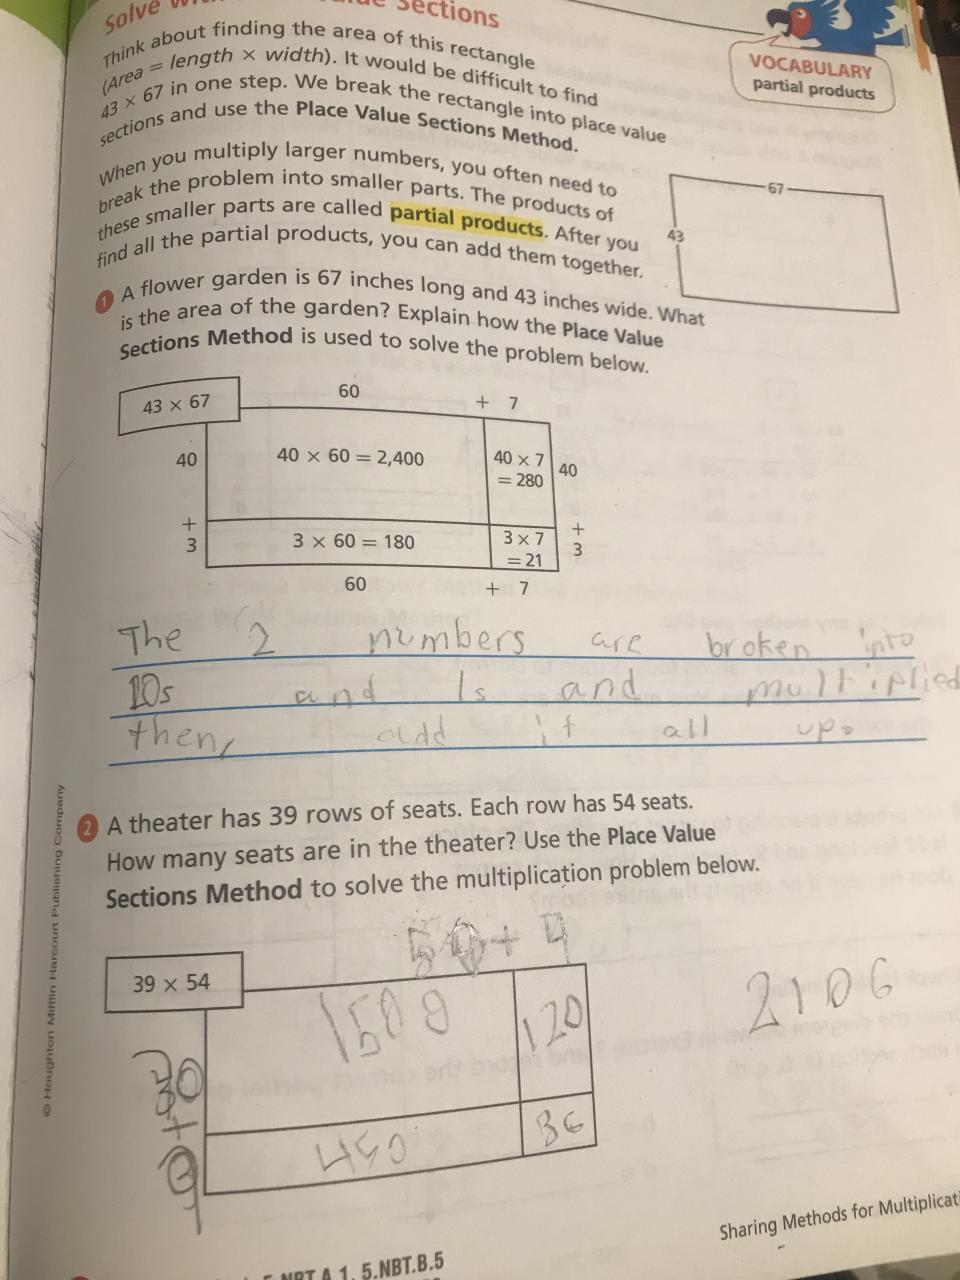 Solve Sections
Think about finding the area of this rectangle
(Area = length × width). It would be difficult to find
43 × 67 in one step. We break the rectangle into place value
sections and use the Place Value Sections Method.
VOCABULARY
partial products
When you multiply larger numbers, you often need to
break the problem into smaller parts. The products of
these smaller parts are called partial products. After you
find all the partial products, you can add them together.
67
43
1 A flower garden is 67 inches long and 43 inches wide. What
is the area of the garden? Explain how the Place Value
Sections Method is used to solve the problem below.
43 × 67
60 + 7
40
40 × 60 = 2,400
40 × 7
= 280
40
+
3
3 × 60 = 180
3 × 7
= 21
+
3
60 + 7
The 2 numbers are broken into
10s and 1s and multiplied
then, add it all up.
2 A theater has 39 rows of seats. Each row has 54 seats.
How many seats are in the theater? Use the Place Value
Sections Method to solve the multiplication problem below.
50 + 4
39 × 54
1500
120
2106
30 + 9
450
36
© Houghton Mifflin Harcourt Publishing Company
Sharing Methods for
5.NBT.B.5